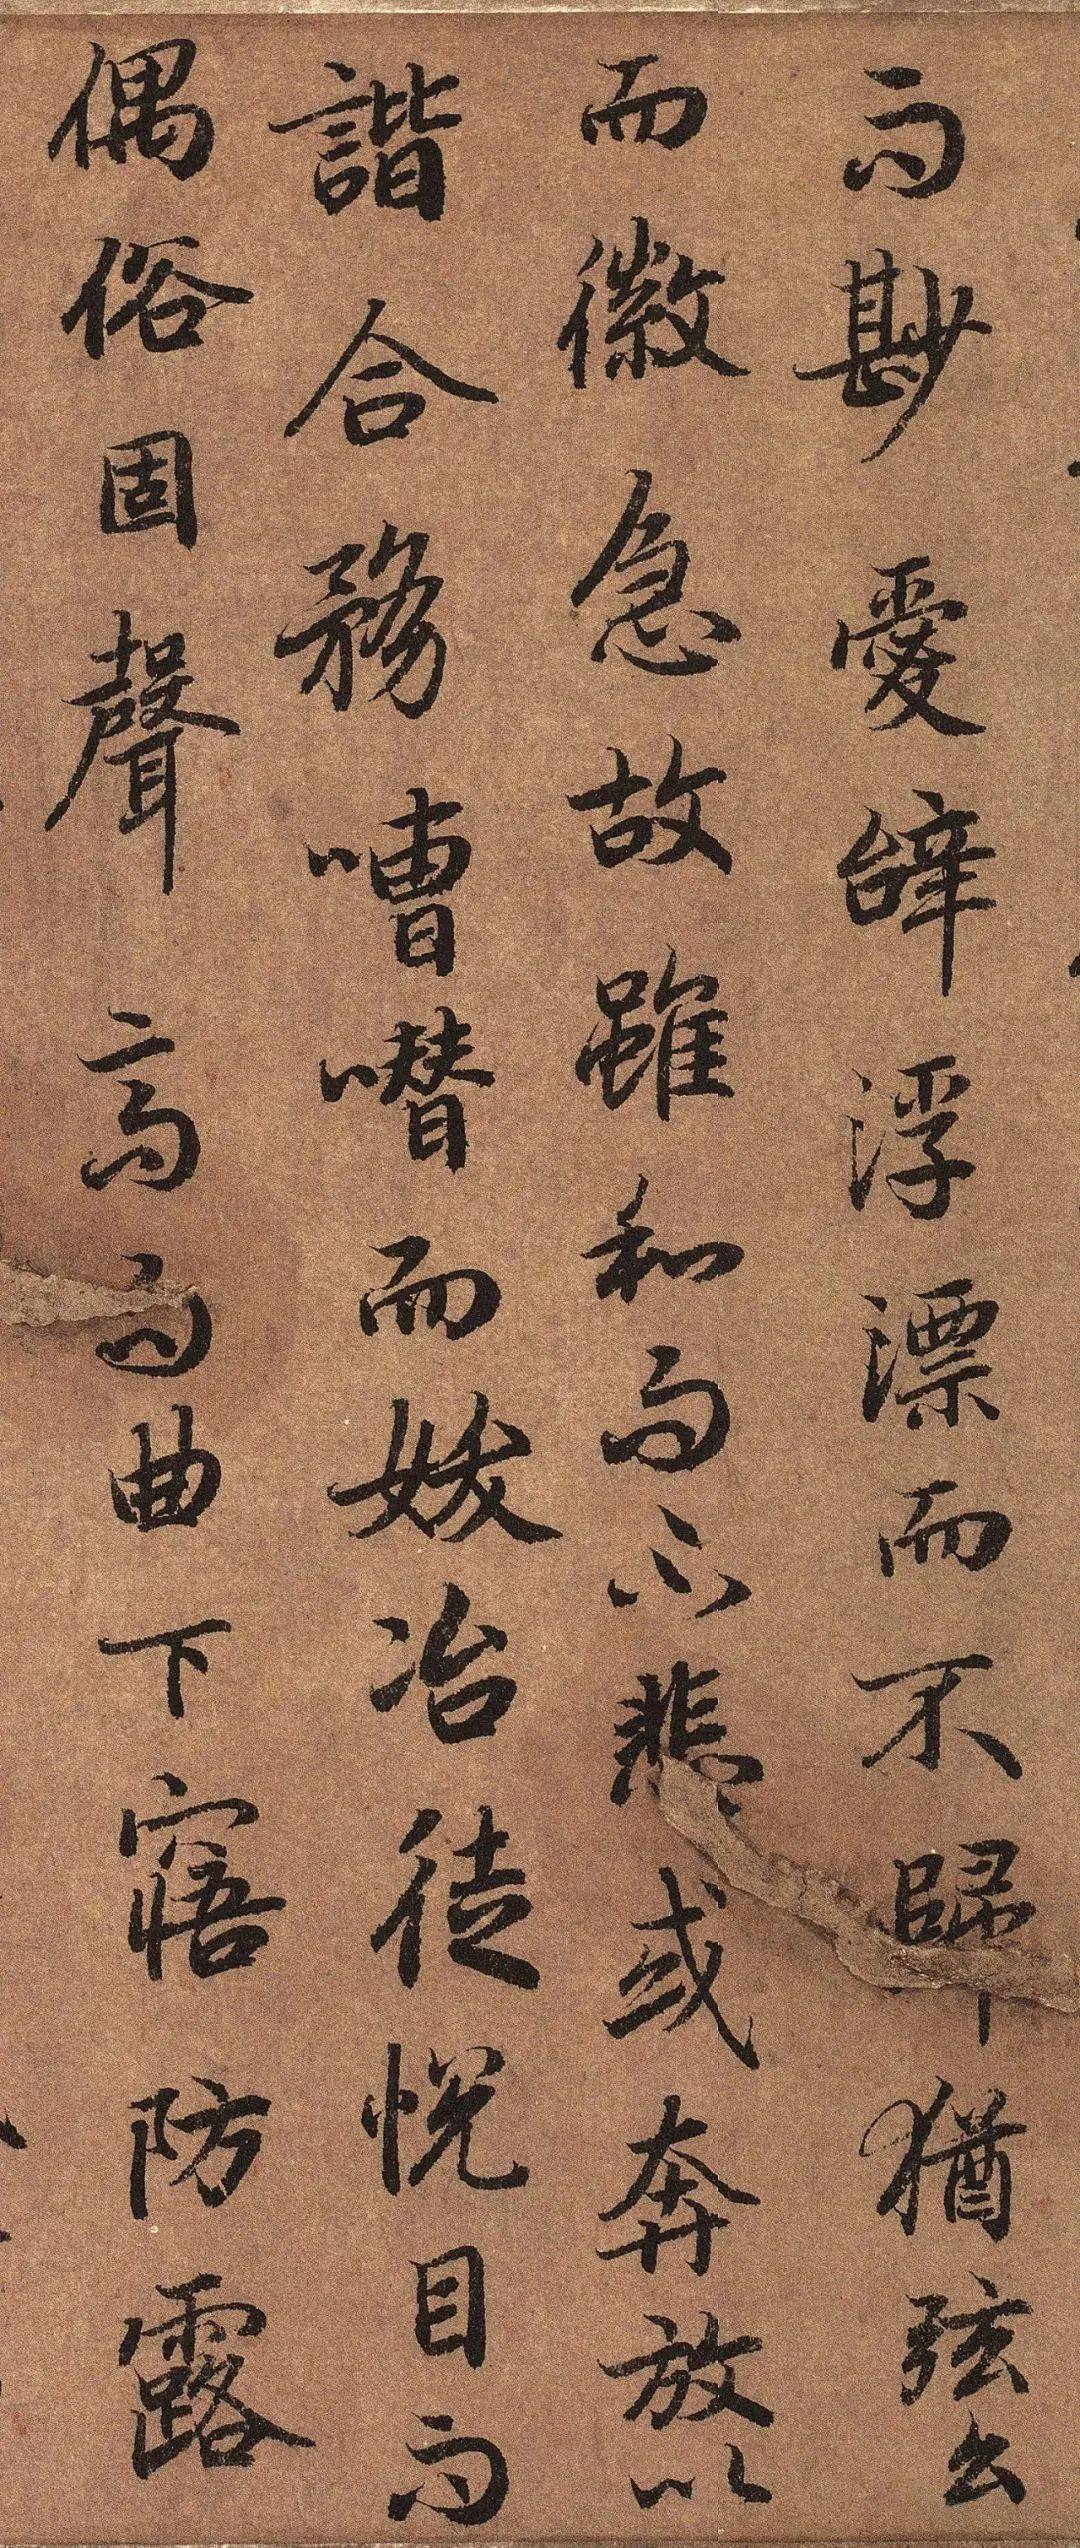 而尠愛辝浮漂而不歸猶弦么
而徽急故雖和而不悲或奔放以
諧合務嘈囋而妖冶徒悅目而
偶俗固聲高而曲下寤防露